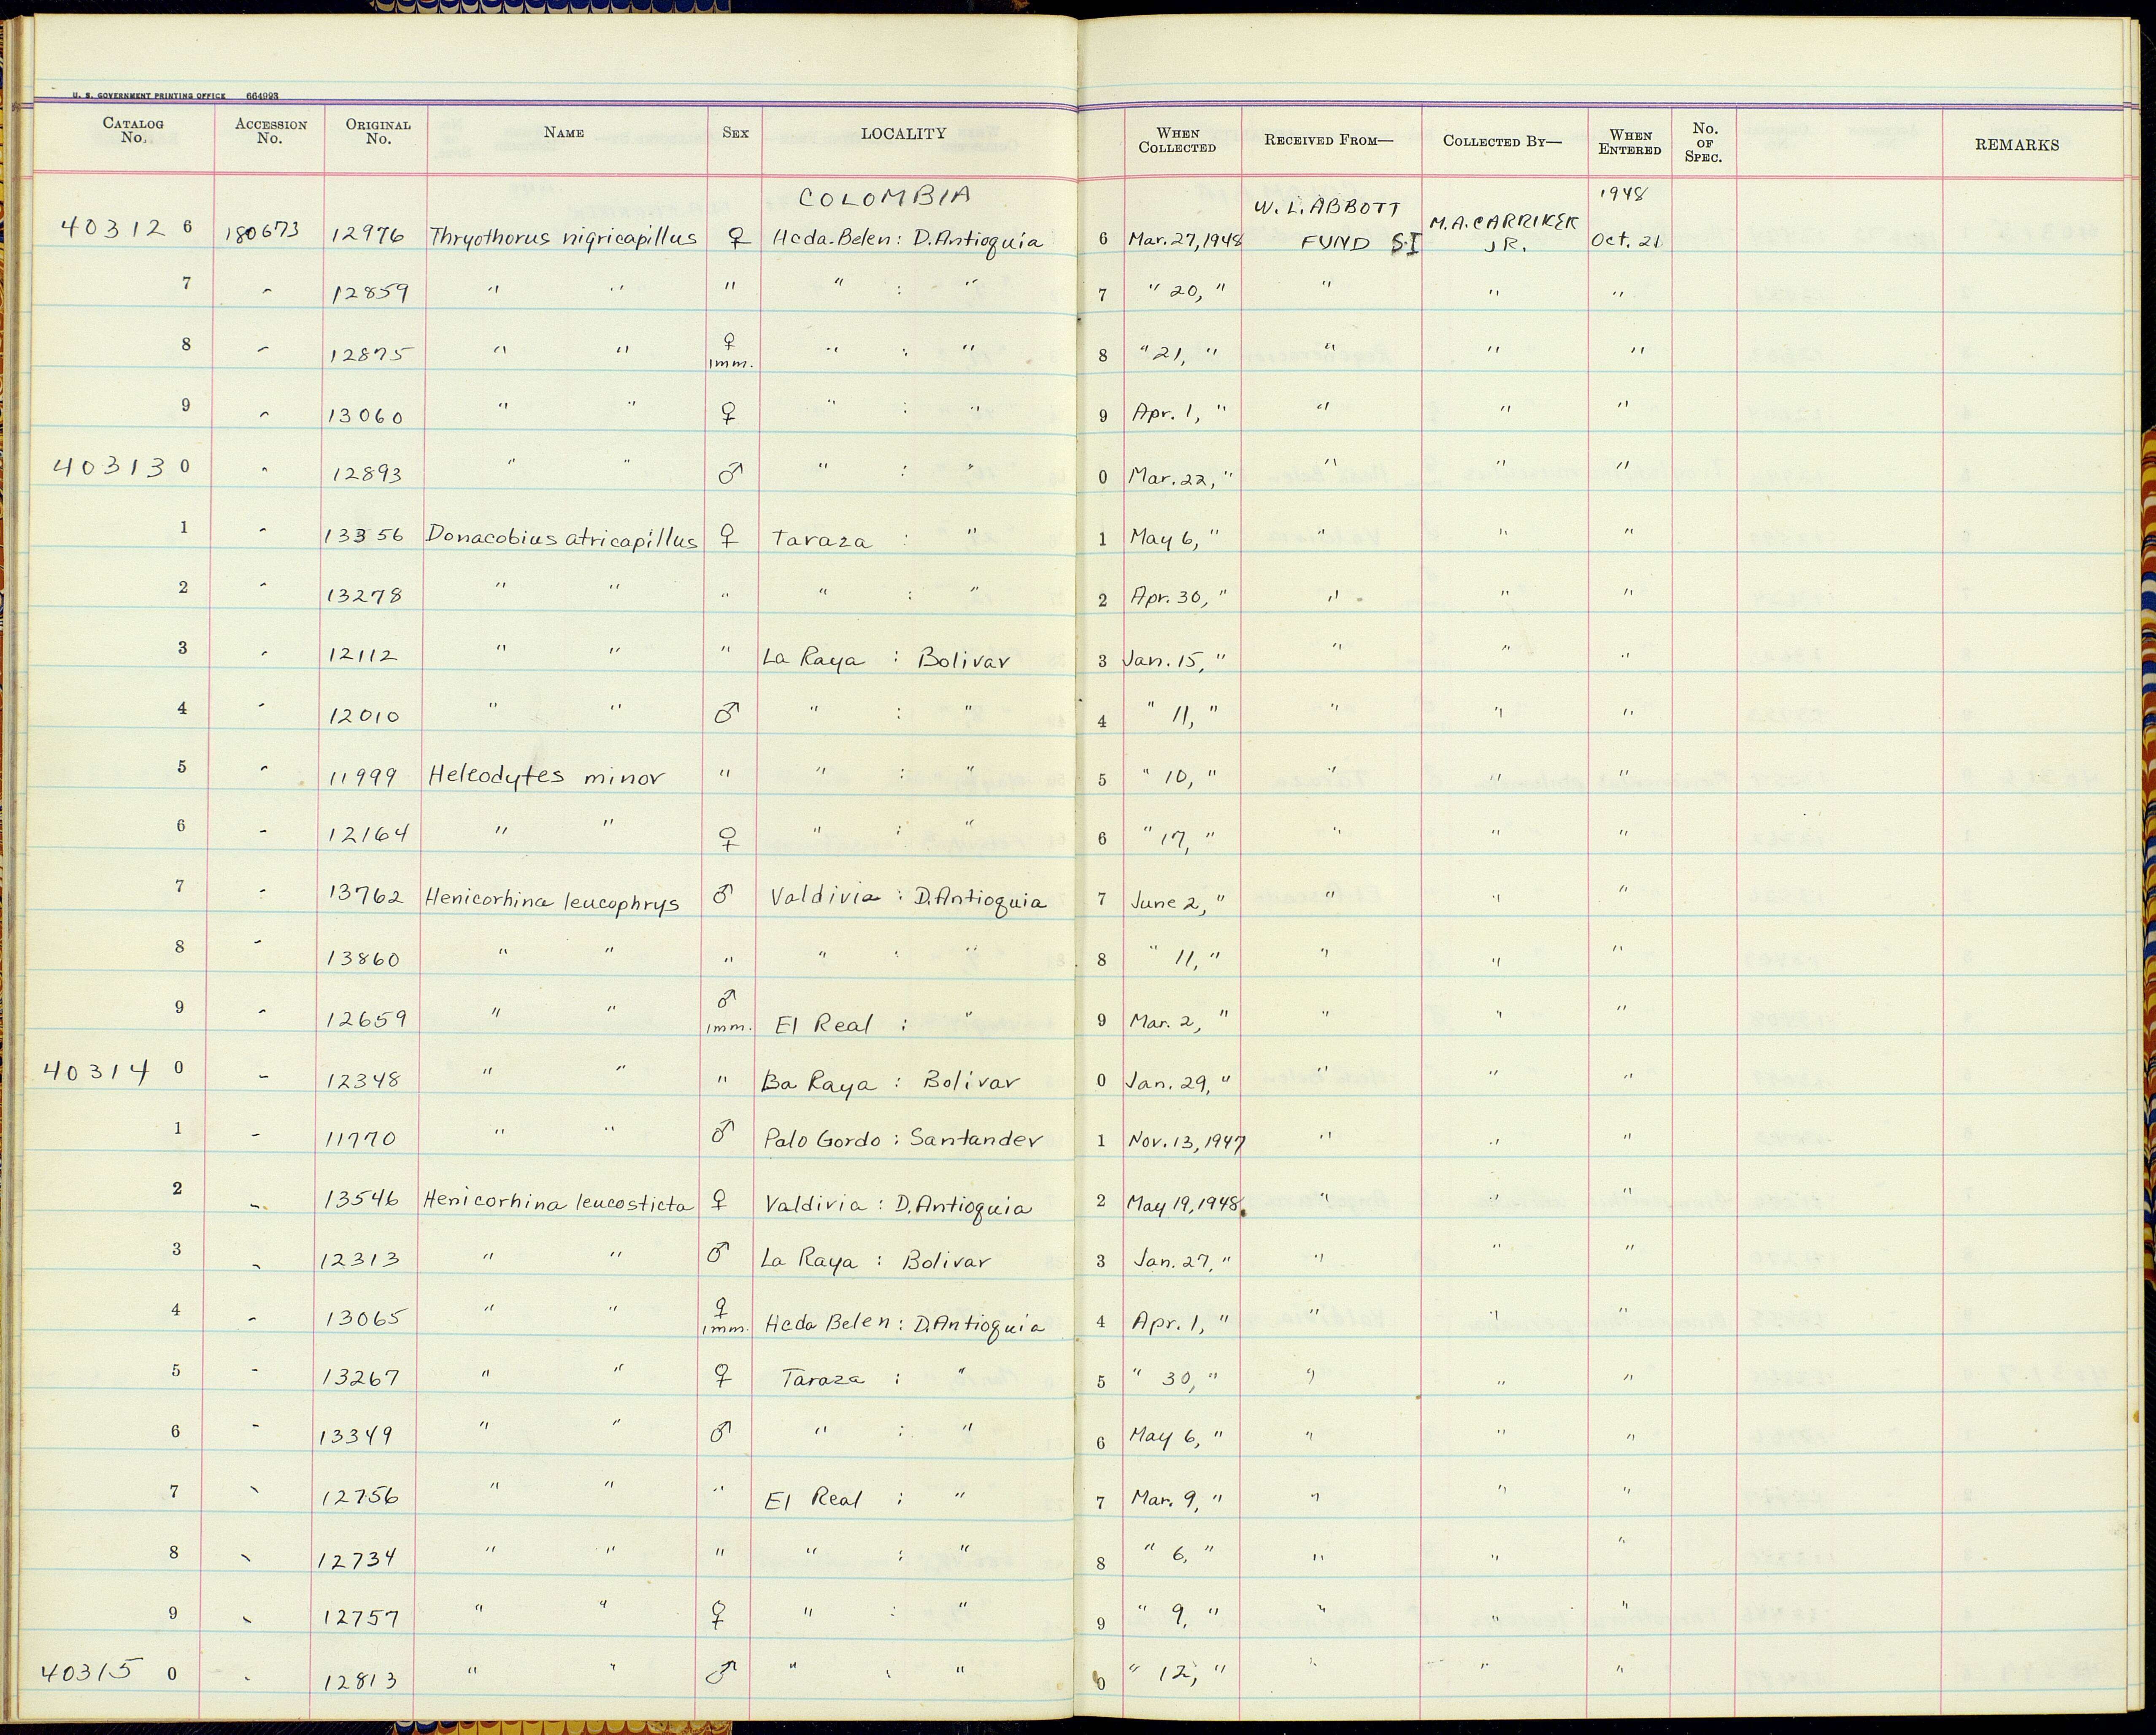 U. S. GOVERNMENT PRINTING OFFICE 664993
CATALOG No. ACCESSION No. ORIGINAL No. NAME SEX LOCALITY WHEN COLLECTED RECEIVED FROM— COLLECTED BY— WHEN ENTERED No. OF SPEC. REMARKS
COLOMBIA W. L. ABBOTT 1948
40312 6 180673 12976 Thryothorus nigricapillus ♀ Hcda. Belen : D. Antioquia 6 Mar. 27, 1948 FUND S.I M. A. CARRIKER JR. Oct. 21
7 " 12859 " " " " : " 7 " 20, " " " "
8 " 12875 " " ♀ imm. " : " 8 " 21, " " " "
9 " 13060 " " ♀ " : " 9 Apr. 1, " " " "
40313 0 " 12893 " " ♂ " : " 0 Mar. 22, " " " "
1 " 13356 Donacobius atricapillus ♀ Taraza : " 1 May 6, " " " "
2 " 13278 " " " " : " 2 Apr. 30, " " " "
3 " 12112 " " " La Raya : Bolivar 3 Jan. 15, " " " "
4 " 12010 " " ♂ " : " 4 " 11, " " " "
5 " 11999 Heleodytes minor " " : " 5 " 10, " " " "
6 " 12164 " " ♀ " : " 6 " 17, " " " "
7 " 13762 Henicorhina leucophrys ♂ Valdivia : D. Antioquia 7 June 2, " " " "
8 " 13860 " " " " : " 8 " 11, " " " "
9 " 12659 " " ♂ imm. El Real : " 9 Mar. 2, " " " "
40314 0 " 12348 " " " Ba Raya : Bolivar 0 Jan. 29, " " " "
1 " 11770 " " ♂ Palo Gordo : Santander 1 Nov. 13, 1947 " " "
2 " 13546 Henicorhina leucosticta ♀ Valdivia : D. Antioquia 2 May 19, 1948 " " "
3 " 12313 " " ♂ La Raya : Bolivar 3 Jan. 27, " " " "
4 " 13065 " " ♀ imm. Hcda Belen : D. Antioquia 4 Apr. 1, " " " "
5 " 13267 " " ♀ Taraza : " 5 " 30, " " " "
6 " 13349 " " ♂ " : " 6 May 6, " " " "
7 " 12756 " " " El Real : " 7 Mar. 9, " " " "
8 " 12734 " " " " : " 8 " 6, " " " "
9 " 12757 " " ♀ " : " 9 " 9, " " " "
40315 0 " 12813 " " ♂ " : " 0 " 12, " " " "